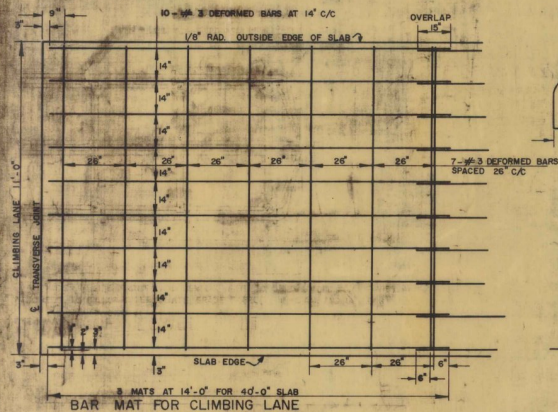 10 - # 3 DEFORMED BARS AT 14" C/C
OVERLAP
15"
9"
3"
1/8" RAD. OUTSIDE EDGE OF SLAB
14"
14"
14"
14"
26" 26" 26" 26" 26" 26"
7 - # 3 DEFORMED BARS
SPACED 26" C/C
14"
14"
14"
14"
14"
CLIMBING LANE 11'-0"
℄ TRANSVERSE JOINT
3"
3"
SLAB EDGE
3"
26" 26"
6" 6"
3 MATS AT 14'-0" FOR 40'-0" SLAB
BAR MAT FOR CLIMBING LANE